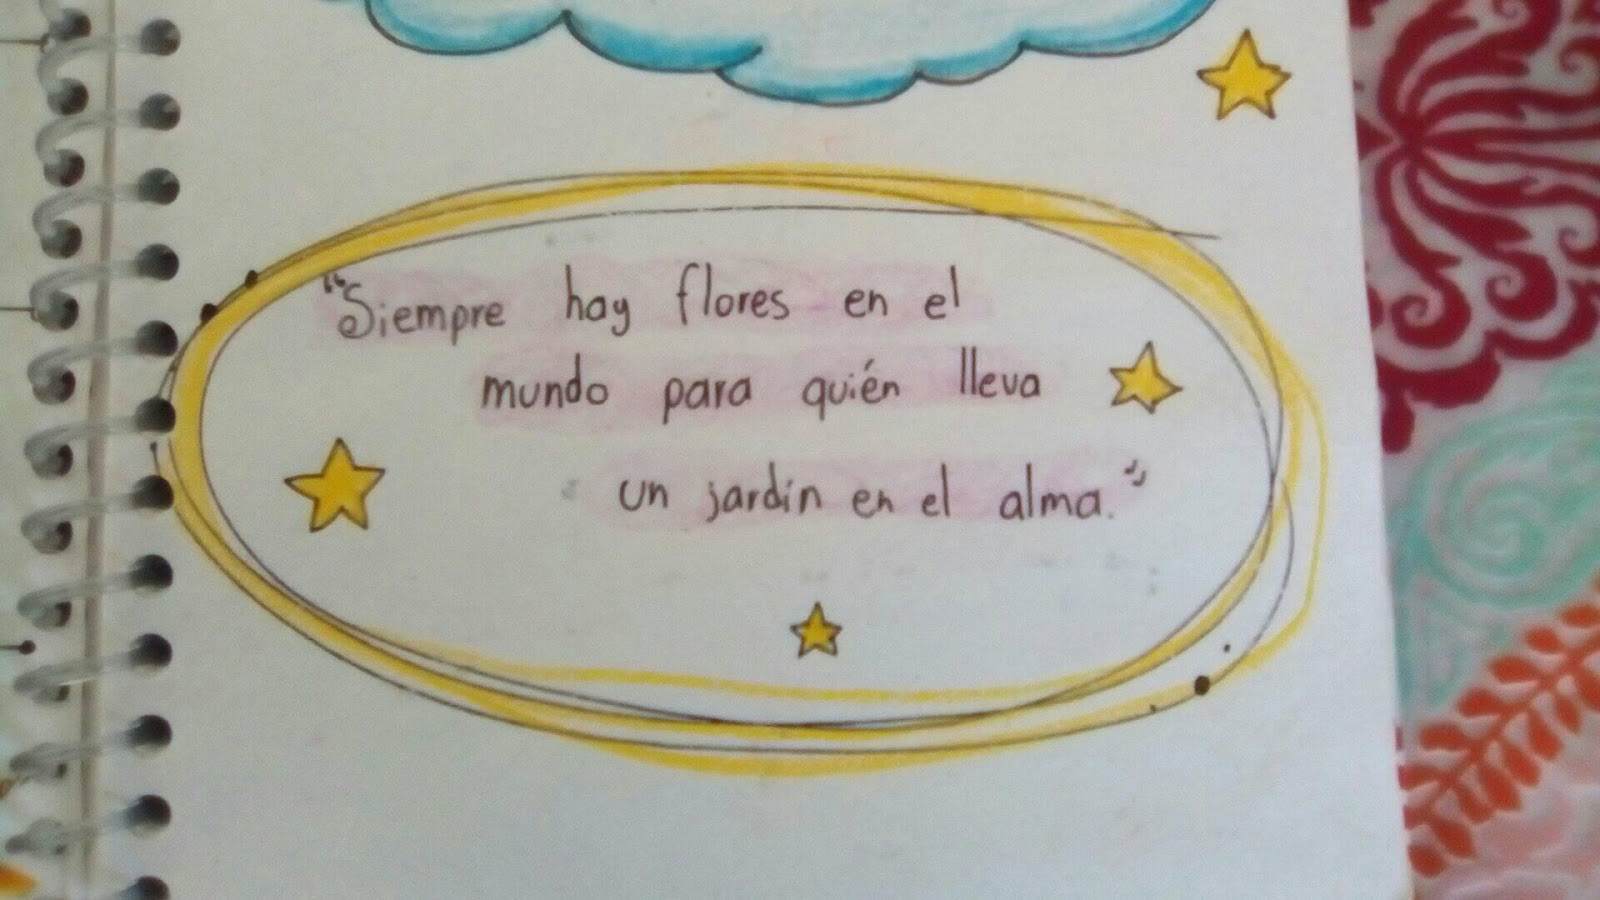 “Siempre hay flores en el
mundo para quién lleva
un jardín en el alma.”